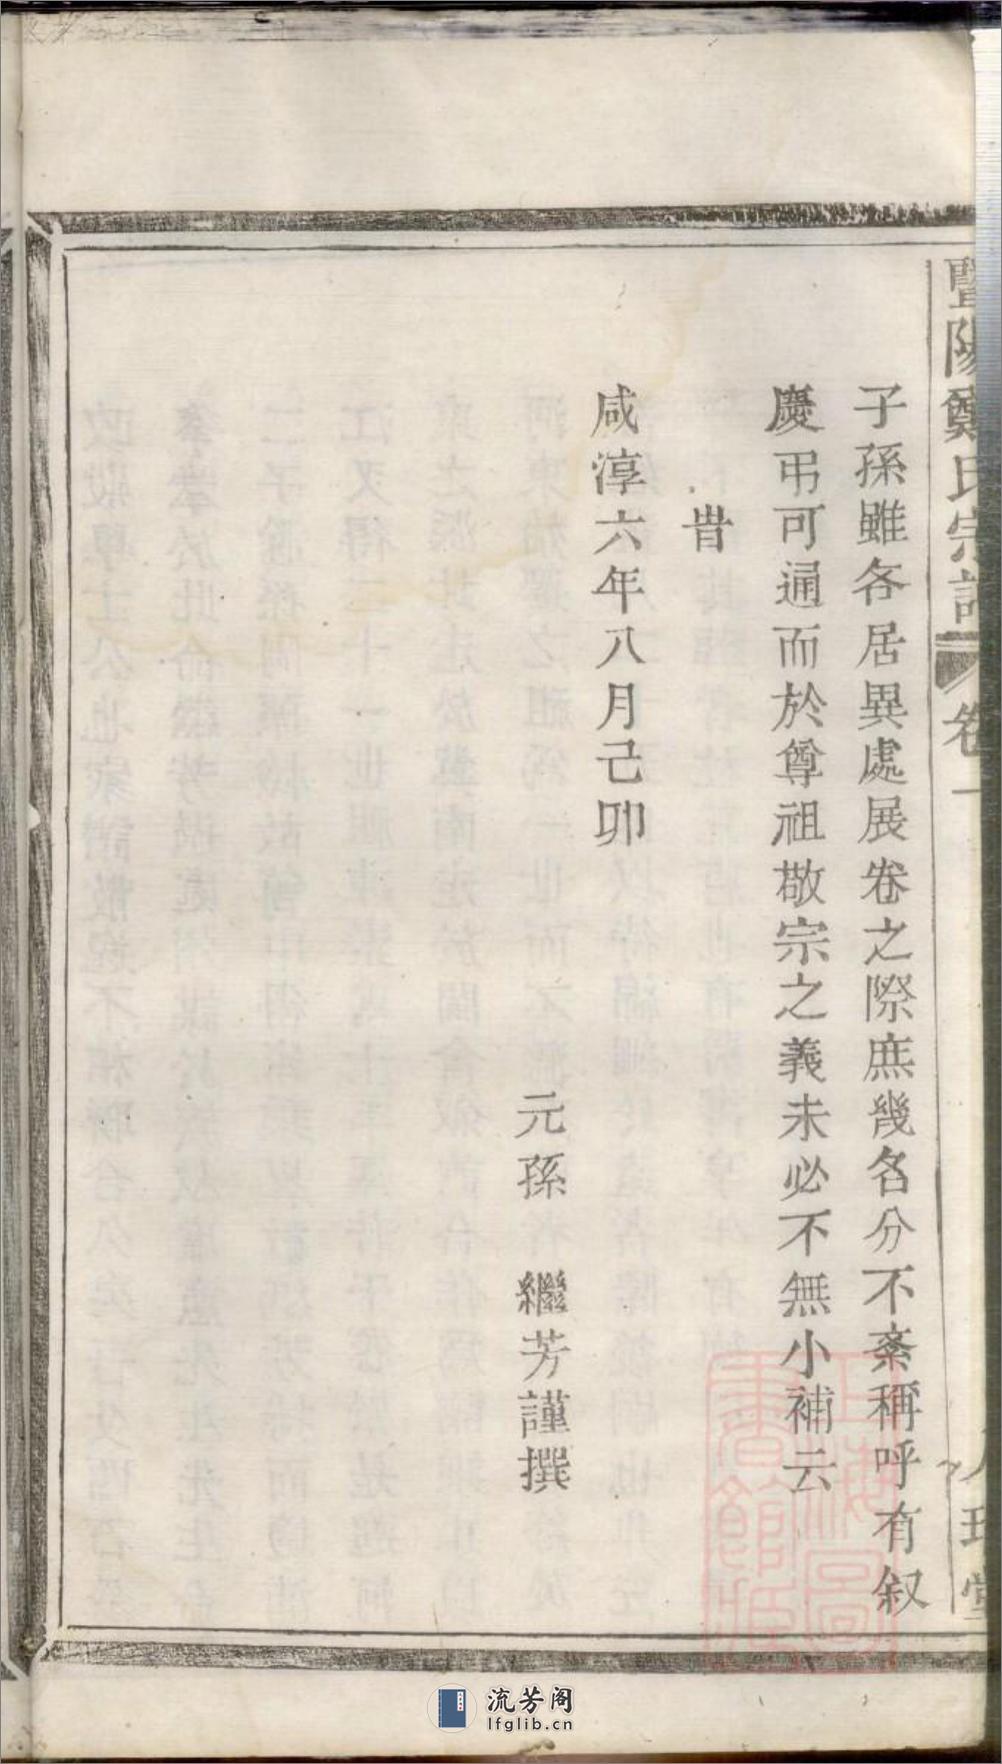 暨陽鄭氏宗譜 卷一
子孫雖各居異處展卷之際庶幾名分不紊稱呼有叙
慶弔可通而於尊祖敬宗之義未必不無小補云
旹
咸淳六年八月己卯
元孫 繼芳謹撰
上海圖書館藏
流芳阁
lfglib.cn